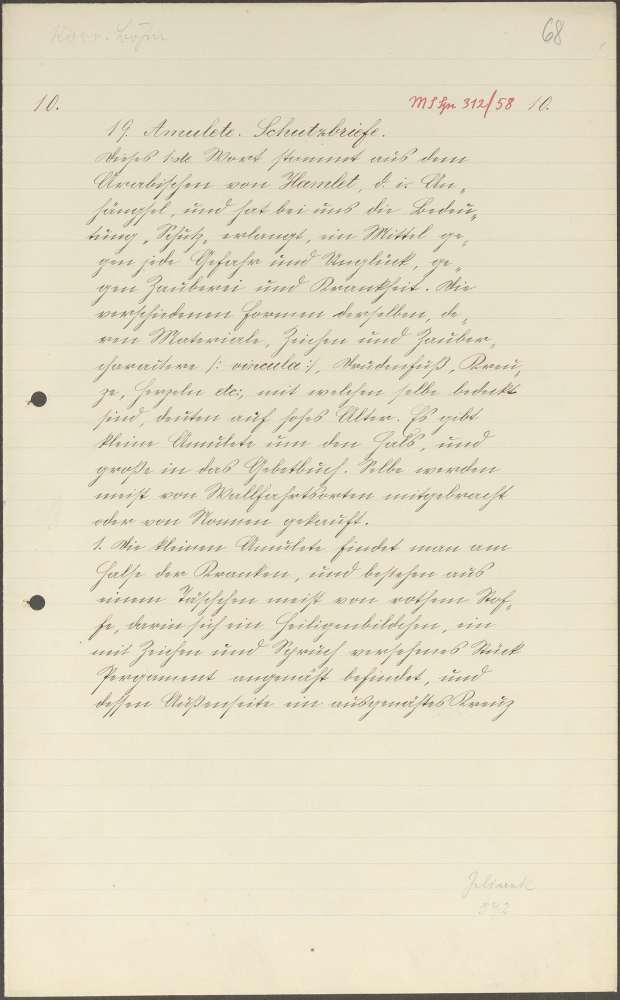 68
10.
MS Gr. 312/58 10.
19. Amulete. Schutzbriefe.
Dieses 1ste Wort stammt aus dem
Arabischen von Hamlet, d. i. An„
hängsel, und hat bei uns die Bedeu„
tung „Schutz„ erlangt, ein Mittel ge„
gen jede Gefahr und Unglück, ge„
gen Zauberei und Krankheit. Die
verschiedenen Formen derselben, de„
ren Materiale, Zeichen und Zauber„
charactere /: vincula :/, Drudenfuß, Kreu„
ze, Herzeln etc:, mit welchen selbe bedeckt
sind, deuten auf hohes Alter. Es gibt
kleine Amulete um den Hals, und
große in das Gebetbuch. Selbe werden
meist von Wallfahrtsorten mitgebracht
oder von Nonnen gekauft.
1. Die kleinen Amulete findet man am
Halse der Kranken, und bestehen aus
einem Täschchen meist von rothem Stof„
fe, darin sich ein Heiligenbildchen, ein
mit Zeichen und Spruch versehenes Stück
Pergament angenäht befindet, und
dessen Außenseite ein ausgenähtes Kreuz
Jelinek
342